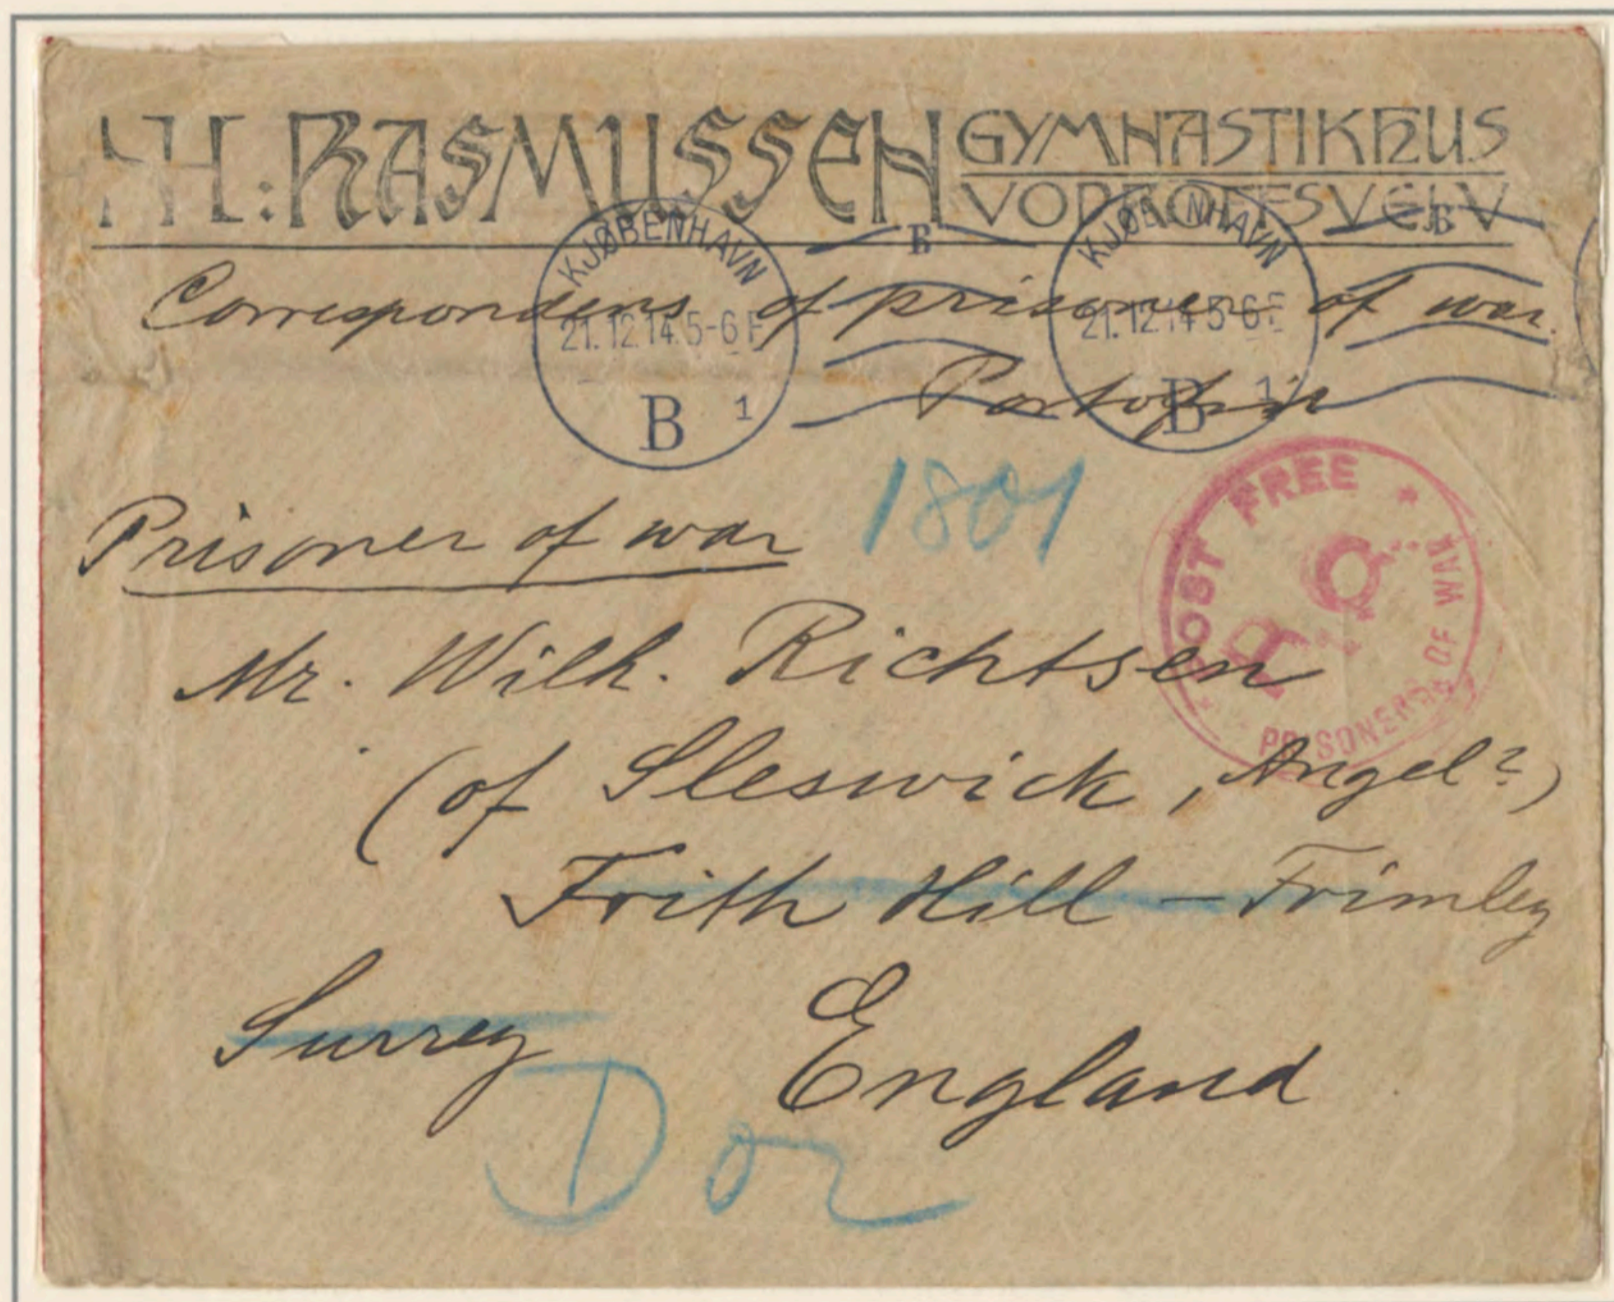 H: RASMUSSEN GYMNASTIKHUS
VODROFFSVEJ
KJØBENHAVN
21.12.14 5-6 F
B 1
B
KJØBENHAVN
21.12.14 5-6 F
B 1
B
Correspondens of prisoner of war.
Portofri
Prisoner of war
1801
POST FREE
P.C.
PRISONERS OF WAR
Mr. Wilh. Richtsen
(of Sleswick, Angel?)
Frith Hill - Frimley
Surrey England
Dor